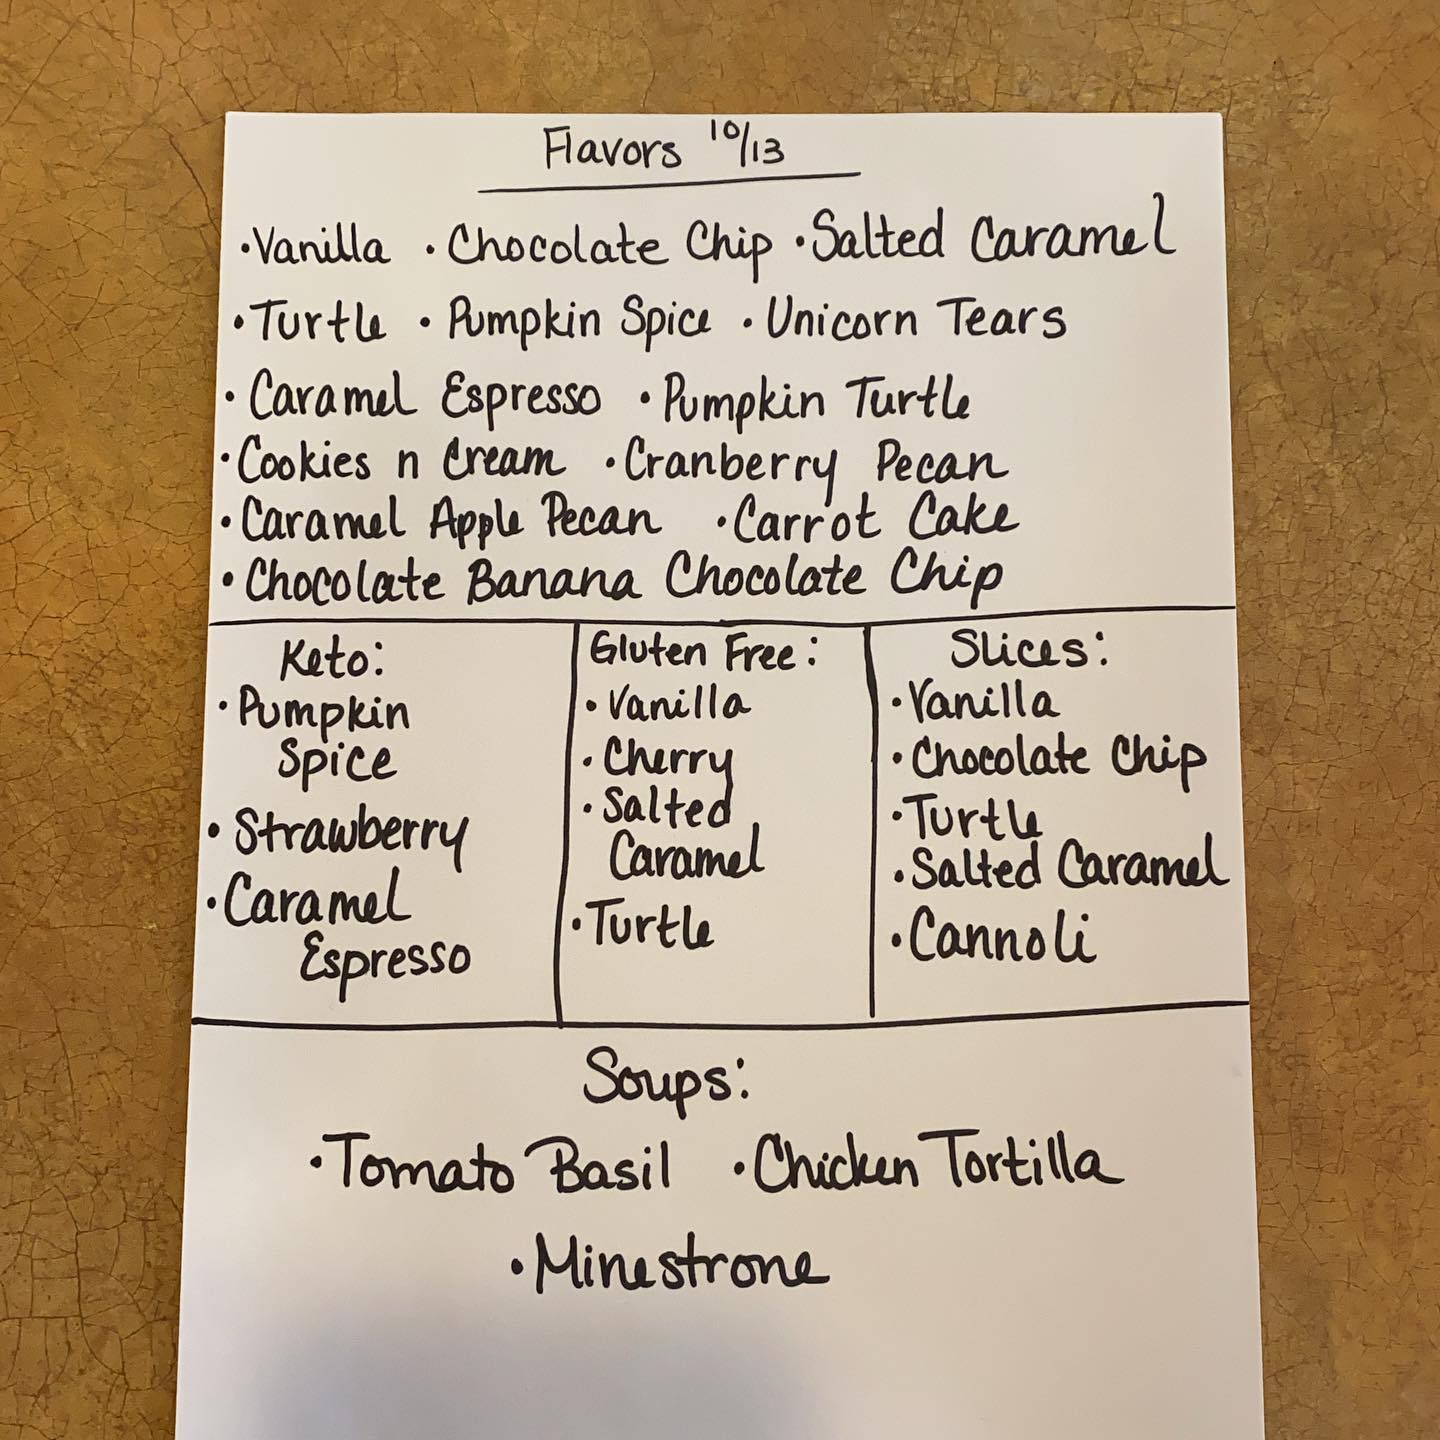 Flavors 10/13
•Vanilla •Chocolate Chip •Salted Caramel
•Turtle •Pumpkin Spice •Unicorn Tears
•Caramel Espresso •Pumpkin Turtle
•Cookies n Cream •Cranberry Pecan
•Caramel Apple Pecan •Carrot Cake
•Chocolate Banana Chocolate Chip
Keto:
•Pumpkin
Spice
•Strawberry
•Caramel
Espresso
Gluten Free:
•Vanilla
•Cherry
•Salted
Caramel
•Turtle
Slices:
•Vanilla
•Chocolate Chip
•Turtle
•Salted Caramel
•Cannoli
Soups:
•Tomato Basil •Chicken Tortilla
•Minestrone